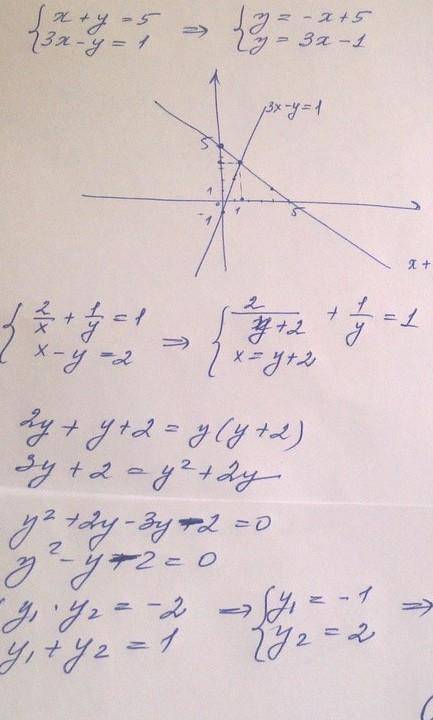 {x + y = 5 ⇒ {y = -x + 5
{3x - y = 1 {y = 3x - 1
3x - y = 1
5
1
-1 1 5
x +
{2/x + 1/y = 1 ⇒ {2/(y + 2) + 1/y = 1
{x - y = 2 {x = y + 2
2y + y + 2 = y(y + 2)
3y + 2 = y² + 2y
y² + 2y - 3y - 2 = 0
y² - y - 2 = 0
{y₁ · y₂ = -2 ⇒ {y₁ = -1 ⇒
y₁ + y₂ = 1 {y₂ = 2